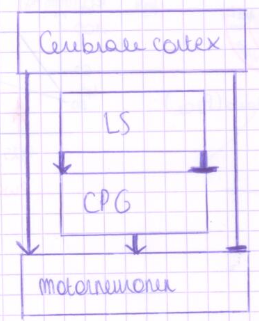 Cerebrale cortex
LS
CPG
Motorneuronen